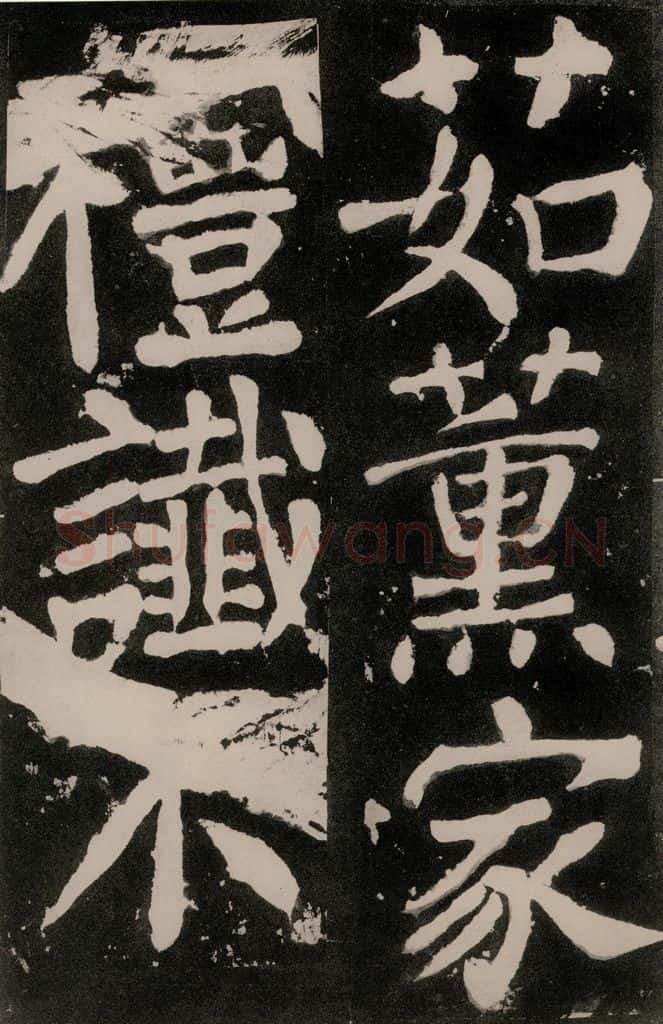 茹薰家
禮讖不
Shufawang.CN